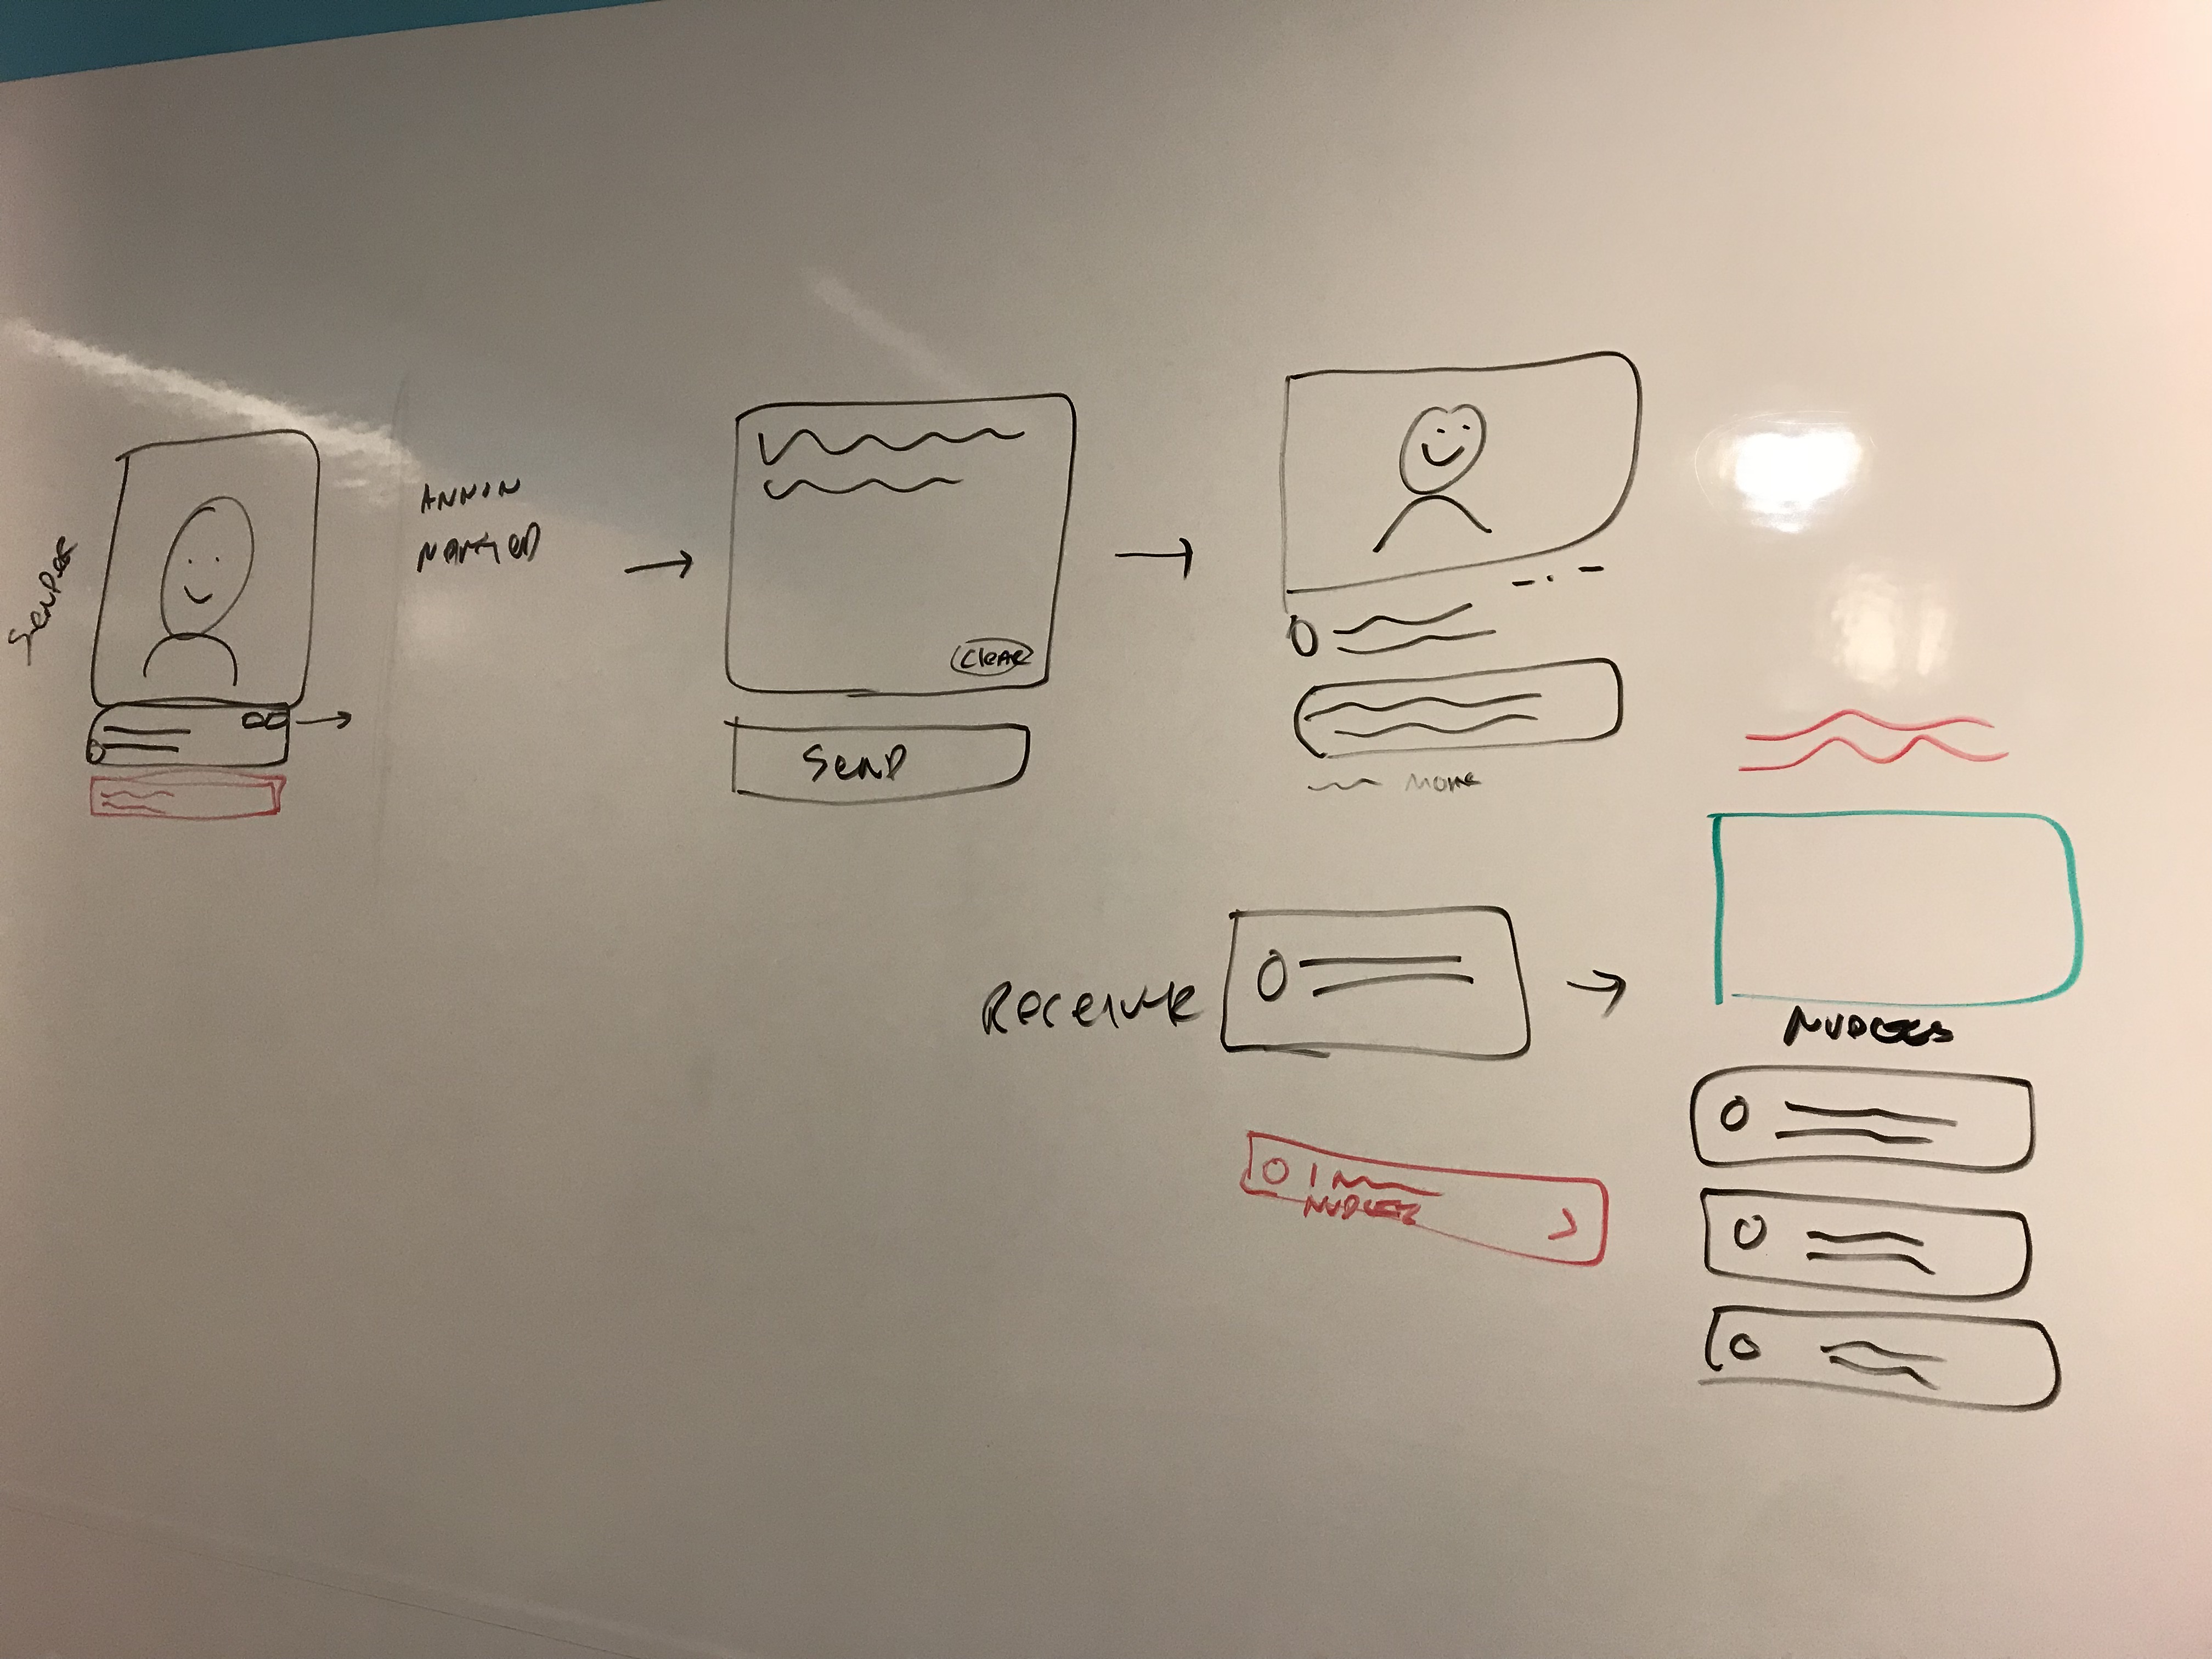 SENDER
ANNON
NAMED
CLEAR
SEND
MORE
RECEIVER
NUDGES
1
NUDGES